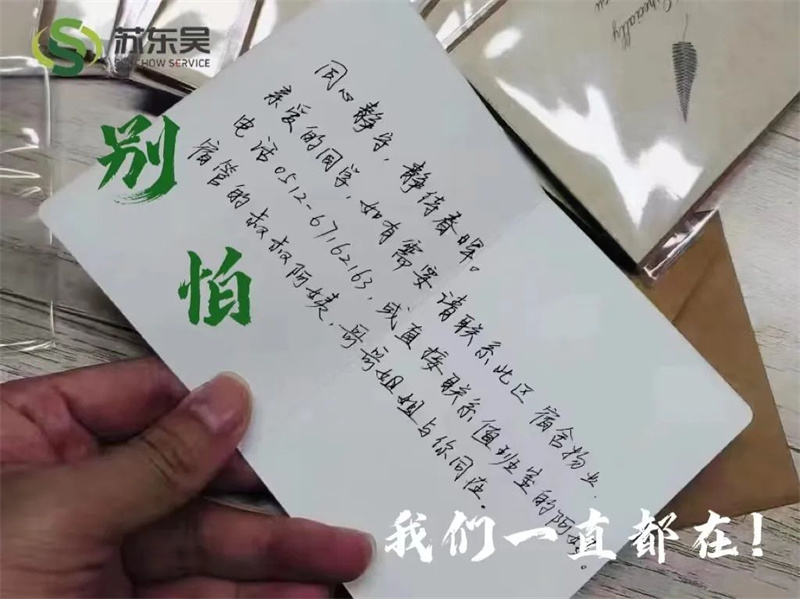 苏东吴
SOOCHOW SERVICE
Specially
别怕
同心静守，静待春晖。
亲爱的同学，如有需要 请联系北区 宿舍物业，
电话0512-67162163，或直接联系值班室的阿姨。
宿管的叔叔阿姨，哥哥姐姐与你同在。
我们一直都在！